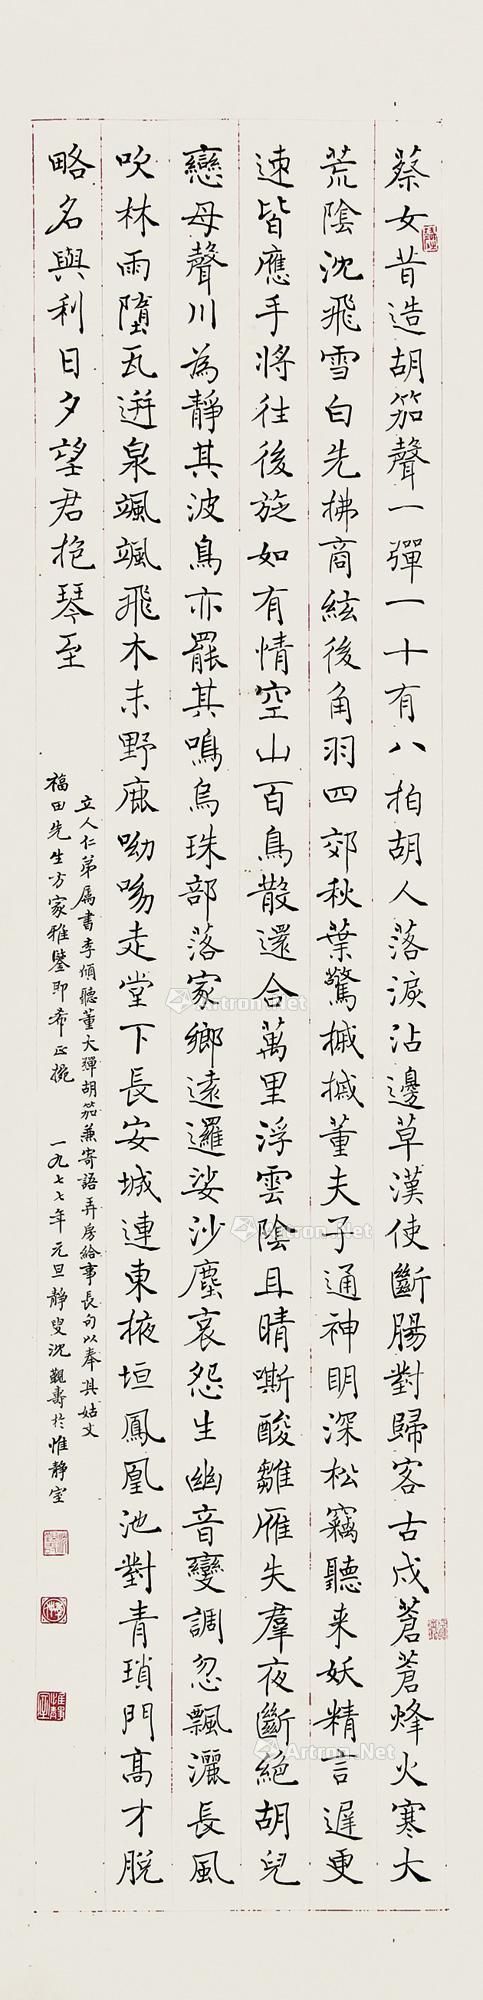 蔡女昔造胡笳聲一彈一十有八拍胡人落淚沾邊草漢使斷腸對歸客古戍蒼蒼烽火寒大
荒陰沈飛雪白先拂商絃後角羽四郊秋葉驚摵摵董夫子通神明深松竊聽来妖精言遲更
速皆應手將往後旋如有情空山百鳥散還合萬里浮雲陰且晴嘶酸雛雁失羣夜斷絕胡兒
戀母聲川為靜其波鳥亦罷其鳴烏珠部落家鄉遠邏娑沙塵哀怨生幽音變調忽飄灑長風
吹林雨墮瓦迸泉颯颯飛木末野鹿呦呦走堂下長安城連東掖垣鳳凰池對青瑣門高才脫
略名與利日夕望君抱琴至
立人仁弟屬書李頎聽董大彈胡笳兼寄語弄房給事長句以奉其姑丈
福田先生方家雅鑒即希正捥
一九七七年元旦靜叟沈覲壽於惟靜室
Artron.Net
Artron.Net
Artron.Net